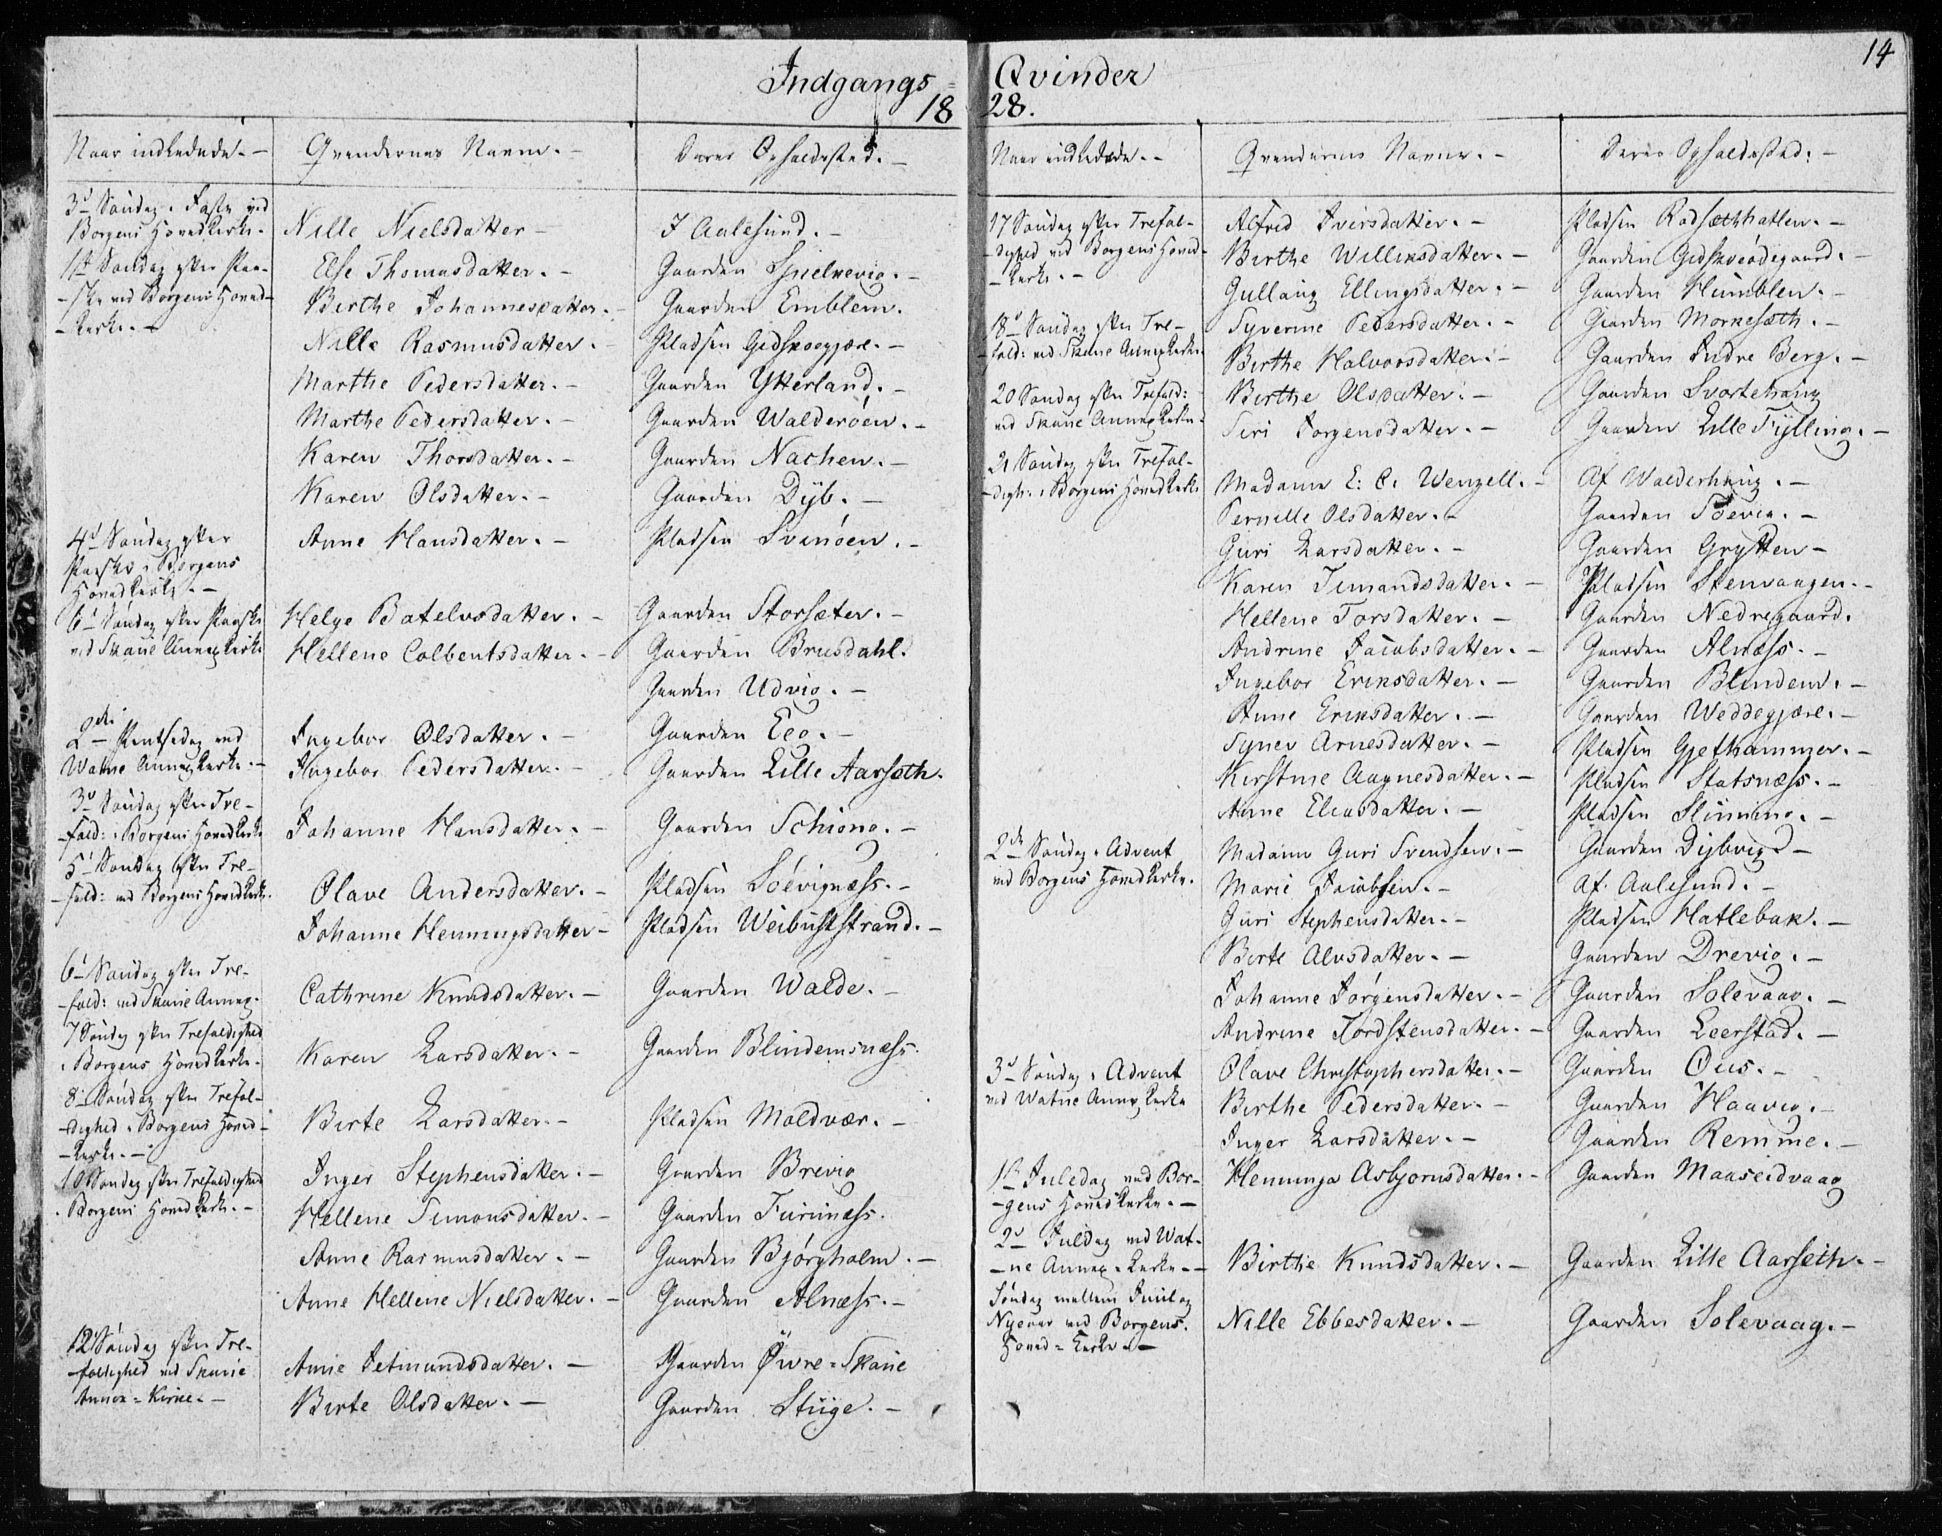 14
Indgangs- Qvinder
1828.
Naar indledede. - Qvindernes Navne. - Deres Opholdssted. -
3d Søndag i Faste ved
Borgens HovedKirke. - Nille Nielsdatter - I Aalesund. -
1st Søndag efter Paa-
-ske ved Borgens Hoved-
-Kirke. - Else Thomasdatter. - Gaarden Spielnevig. -
Birthe Johannesdatter. - Gaarden Emblem.
Nille Rasmusdatter. - Pladsen Gidskeegjære. -
Marthe Pedersdatter. - Gaarden Ytterland. -
Marthe Pedersdatter. - Gaarden Walderöen. -
Karen Thorsdatter. - Gaarden Nachen. -
Karen Olsdatter. - Gaarden Dyb. -
4d Søndag efter
Paaske i Borgens
HovedKirke. - Anne Hansdatter. - Pladsen Svinöen. -
6te Søndag efter Paaske
ved Skaue AnnexKirke Helge Botelvsdatter. - Gaarden Storsæter. -
Hellene Colbentsdatter. - Gaarden Brusdahl.
Gaarden Udvig. -
2den Pintsedag ved
Watne AnnexKirke. - Ingebor Olsdatter. - Gaarden Eeg. -
Ingebor Pedersdatter. - Gaarden Lille Aarseth.
3d Søndag efter Tre-
-fold: i Borgens HovedKirke Johanne Hansdatter. - Gaarden Schiong. -
5t Søndag efter Tre-
-fold: ved Borgens HovedKirke. Olave Andersdatter. - Pladsen Söevignæss. -
Johanne Henningsdatter - Pladsen Weibuststrand. -
6te Søndag efter Tre-
-fold: ved Skaue Annex. Cathrine Knudsdatter. - Gaarden Walde. -
7 Søndag efter Trefoldighed
i Borgens HovedKirke. Karen Larsdatter. - Gaarden Blindemsnæss.
8 Søndag efter Trefol-
-dighed i Borgens Hoved-
-Kirke. - Birte Larsdatter. - Pladsen Moldvær. -
10 Søndag efter Trefoldighed
i Borgens HovedKirke. - Inger Stephensdatter. - Gaarden Brevig
Hellene Simonsdatter. - Gaarden Furunæss.
Anne Rasmusdatter. - Gaarden Bjørgholm. -
Anne Hellene Nielsdatter. - Gaarden Alnæss. -
12 Søndag efter Tre-
-foldighed ved Skaue
Annex-Kirke. - Anne Petmundsdatter. - Gaarden Öwre-Skaue
Birte Olsdatter. - Gaarden Stüge. -
Naar indledede. - Qvindernes Navne. - Deres Opholdssted. -
17 Søndag efter Trefol-
-dighed ved Borgens Hoved-
-Kirke. - Alfrid Iversdatter. - Pladsen Rødsæthhatlen. -
Birthe Willinsdatter. - Gaarden Gidskeödegaard. -
Gullaug Ellingsdatter. - Gaarden Humblen. -
18d Søndag efter Tre-
-fold: ved Skaue AnnexKirke. Syverine Pedersdatter. - Gaarden Mornesæth. -
Birthe Halvorsdatter. - Gaarden Indre Berg. -
20 Søndag efter Trefold:
ved Skaue AnnexKirke Birthe Olsdatter. - Gaarden Svortehaug
Siri Jorgensdatter. - Gaarden Lille Fylling. -
21 Søndag efter Trefol-
-digh. i Borgens HovedKirke Madame E: C. Wengell. - Af Walderhaug. -
Pernille Olsdatter. - Gaarden Söevig. -
Guri Larsdatter. - Gaarden Grytten -
Karen Timandsdatter. - Pladsen Stenvaagen. -
Hellene Torsdatter. - Gaarden Nedregaard.
Andrine Jacobsdatter. - Gaarden Alnæss. -
Ingebor Eriksdatter. - Gaarden Blindem. -
Anne Eriksdatter. - Gaarden Weddegjære. -
Synev Arnesdatter. - Pladsen Gjethammer. -
Kirstine Aagnesdatter. - Pladsen Statsnæss. -
Anne Eliasdatter. - Pladsen Slinning. -
2den Søndag i Advent
ved Borgens HovedKirke. Madame Guri Svendsen. - Gaarden Dybvig -
Marie Jacobsen. - Af Aalesund. -
Guri Stephensdatter. - Pladsen Hatlebak. -
Birte Alvsdatter. - Gaarden Drevig. -
Johanne Jörgensdatter. - Gaarden Solevaag. -
Andrine Tordstensdatter. - Gaarden Leerstad. -
3d Søndag i Advent
ved Watne AnnexKirke Olave Christophersdatter. - Gaarden Ous. -
Birthe Pedersdatter. - Gaarden Haavig. -
Inger Larsdatter. - Gaarden Remme. -
1ste Juledag ved Bor-
-gens HovedKirke. - Henninga Asbjornsdatter. - Gaarden Maaseidvaag
2d Juledag ved Wat-
-ne Annex-Kirke - Birthe Knudsdatter. - Gaarden Lille Aarseth. -
Søndag mellem Juul og
Nyeaar ved Borgens
Hoved-Kirke. - Nille Ebbesdatter. - Gaarden Solevaag. -